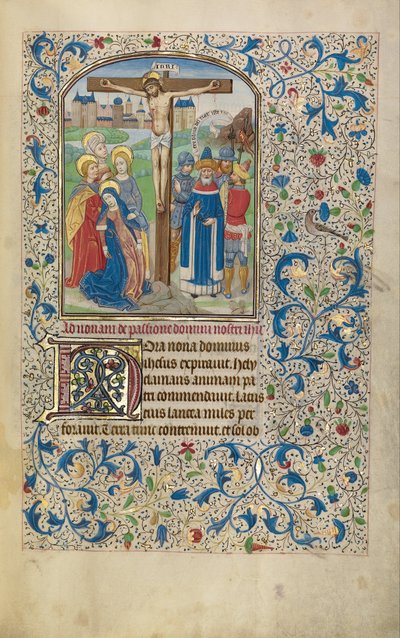 INRI
Ad nonam de passione domini nostri
Hora nona dominus
ihesus expiravit. hely
clamans animam pa
tri commendavit. Latus
eius lancea miles per
foravit. Terra tunc contremuit. et sol ob